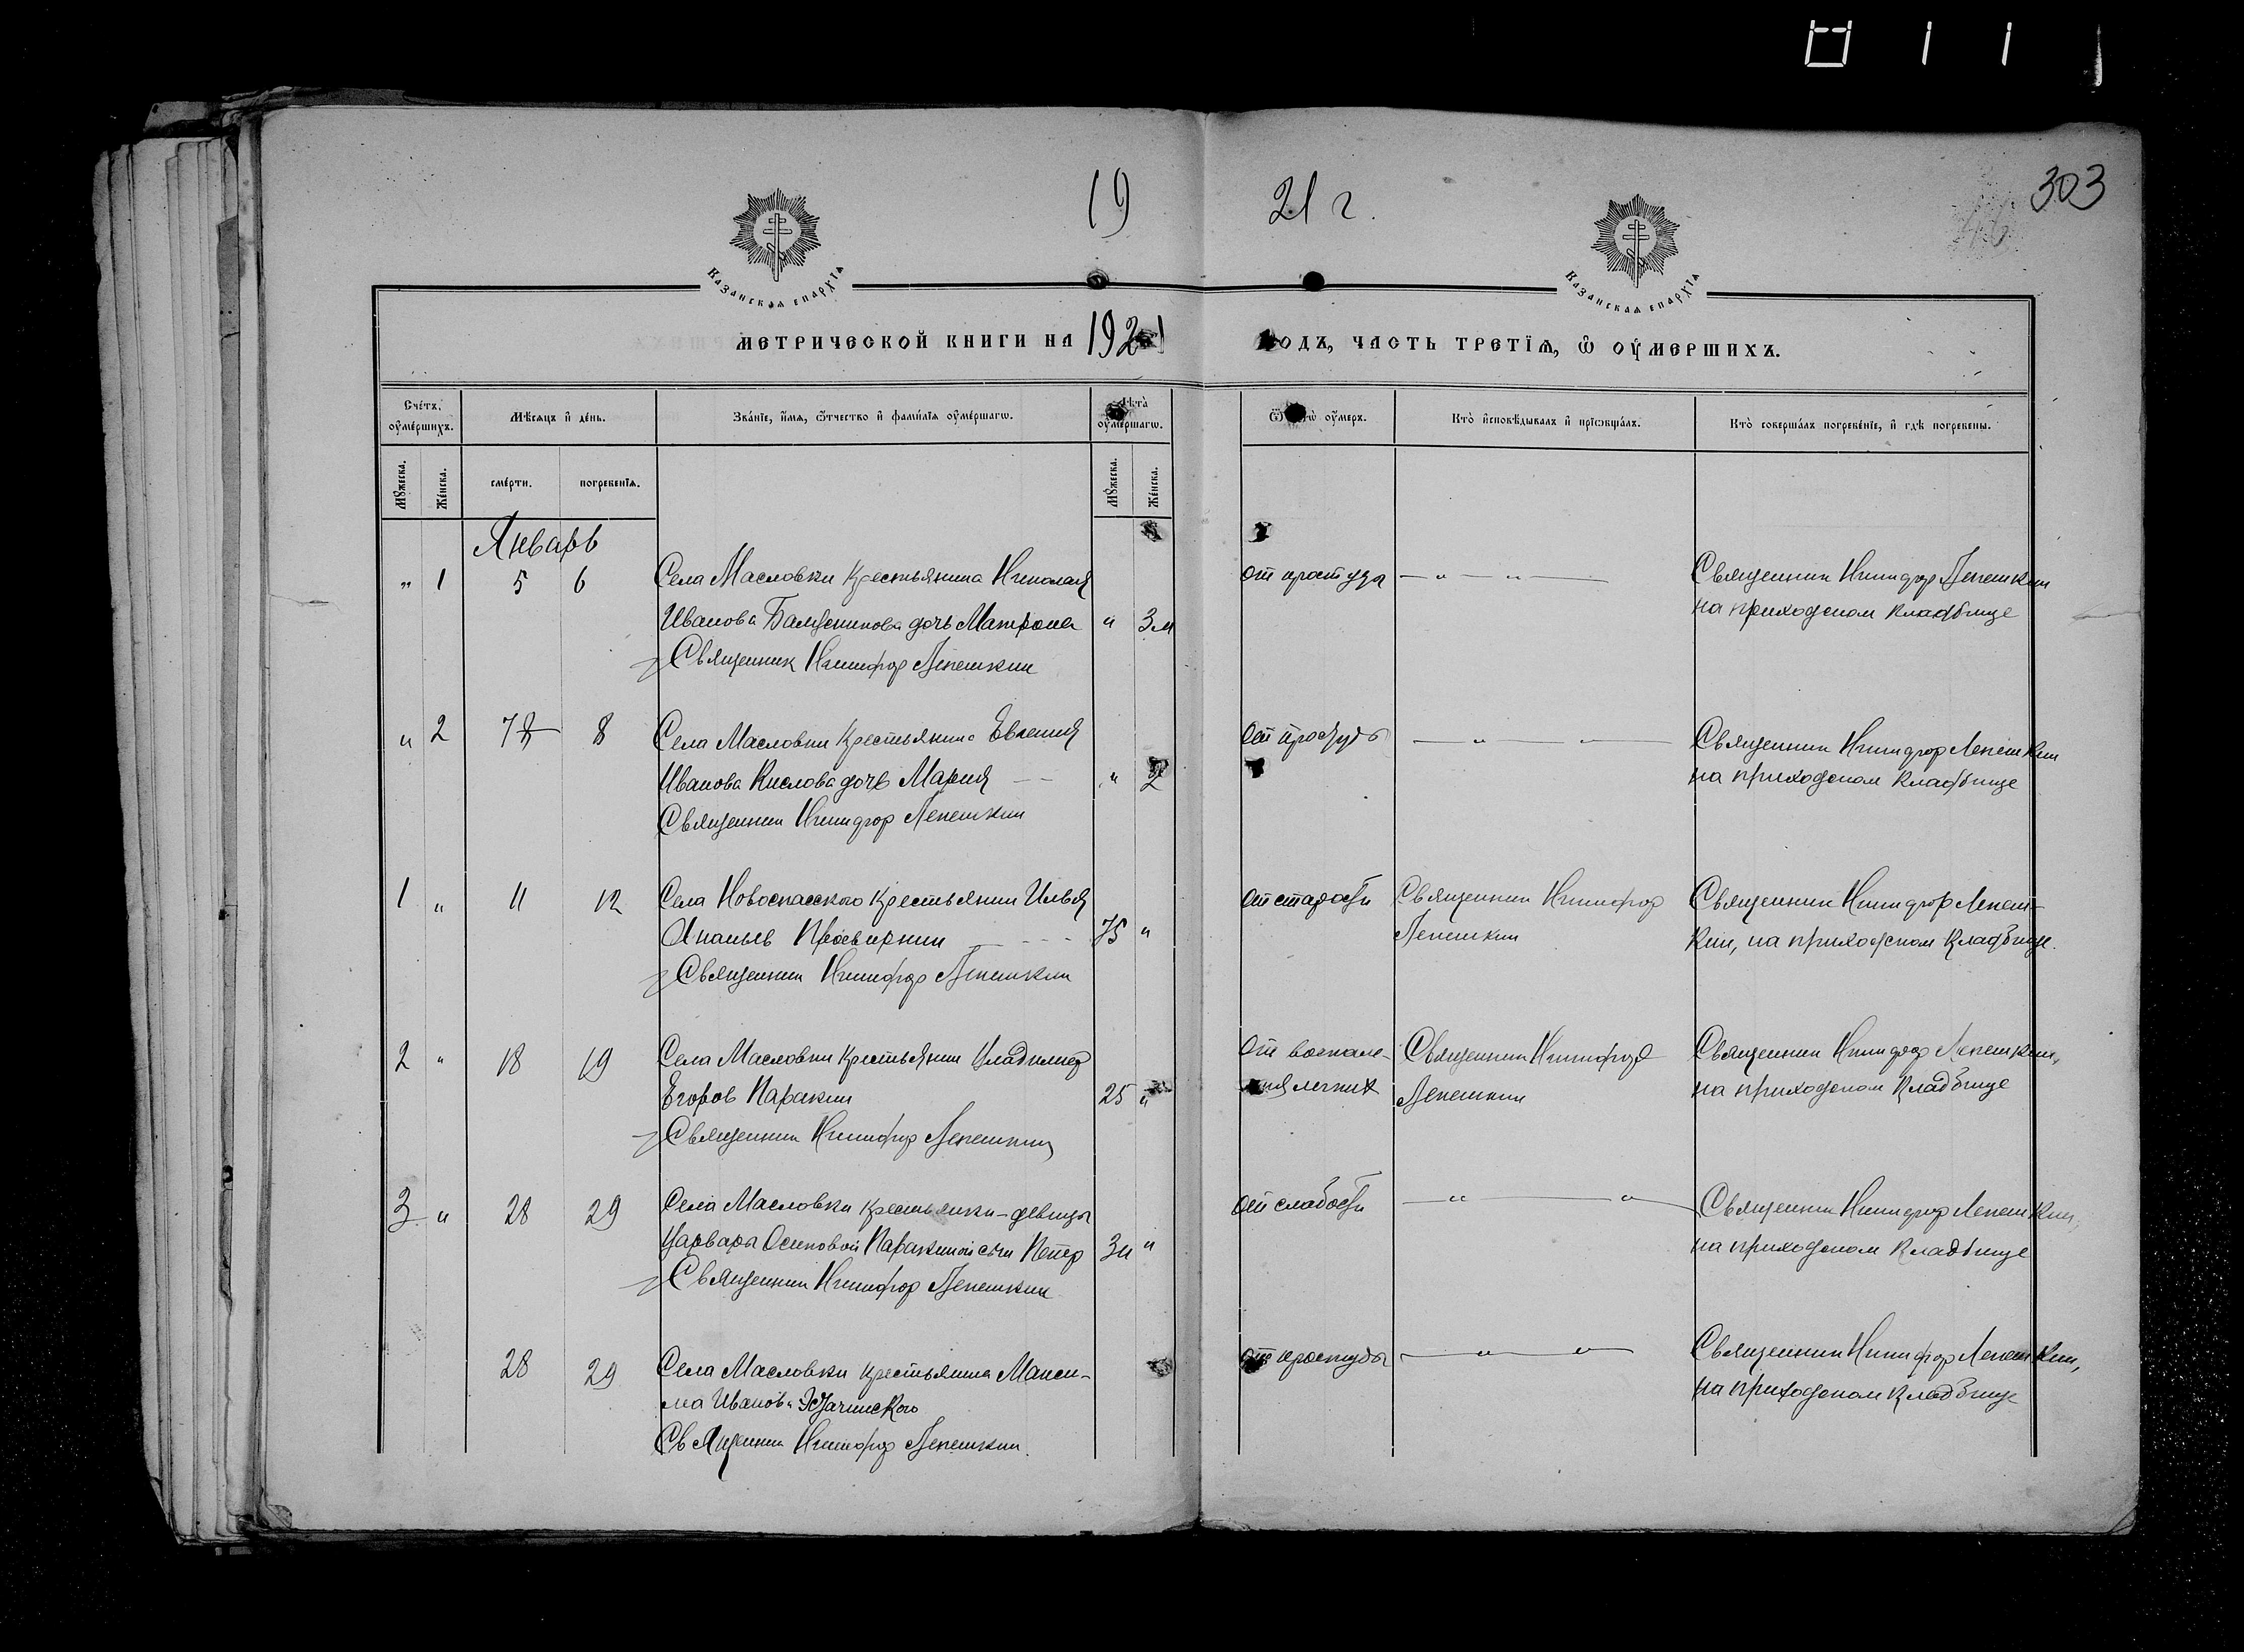 19 21 г. 303
Казанская епархїя Казанская епархїя
метрической книги на 1921 годъ, часть третїѧ, ѡ оумершихъ.
Счетъ оумершихъ. Мѣсяцъ и день. Званїе, имя, отчество и фамилїя оумершагѡ. Лѣта оумершагѡ. Отъ чегѡ оумеръ. Кто исповѣдывалъ и прїобщалъ. Кто совершалъ погребенїе, и гдѣ погребены.
Мужеска. Женска. смерти. погребенїя. Мужеска. Женска.
Январь
„ 1 5 6 Села Масловки Крестьянина Николая от простуды — „ — „ — Священник Никифор Лепешкин
Иванова дочь Матрона „ 3м на приходском кладбище
Священник Никифор Лепешкин
„ 2 7 8 Села Масловки Крестьянина Евгения От простуды — „ — „ — Священник Никифор Лепешкин
Иванова Кислова дочь Мария — — „ 2 на приходском кладбище
Священник Никифор Лепешкин
1 „ 11 12 Села Новоспасского Крестьянин Илья От старости Священник Никифор Священник Никифор Лепеш-
Ананьев Просвиркин 75 „ Лепешкин кин, на приходском кладбище.
Священник Никифор Лепешкин
2 „ 18 19 Села Масловки Крестьянин Владимир От воспале- Священник Никифор Священник Никифор Лепешкин,
Егоров Паракин 25 „ ния легких Лепешкин на приходском кладбище
Священник Никифор Лепешкин
3 „ 28 29 Села Масловки Крестьянки-девицы От слабости — „ — „ — Священник Никифор Лепешкин,
Варвары Осиповой Паракиной сын Петр 3н „ на приходском кладбище
Священник Никифор Лепешкин
28 29 Села Масловки Крестьянина Макси- От простуды — „ — „ — Священник Никифор Лепешкин,
ма Иванова на приходском кладбище
Священник Никифор Лепешкин.